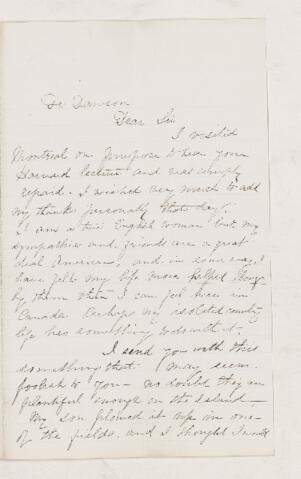 Dr Dawson
Dear Sir
I visited
Montreal on purpose to hear your
Harvard lecture and was amply
repaid. I wished very much to add
my thanks personally that day.
I am a true English woman but my
sympathies and friends are a great
deal American, and in some ways I
have felt my life more helped along
by them than I can for here in
Canada. Perhaps my isolated country
life has something to do with it.
I send you with this
something that may seem
foolish to you - no doubt they are
plentiful enough on the island -
My son plowed it up in one
of the fields, and I thought I would